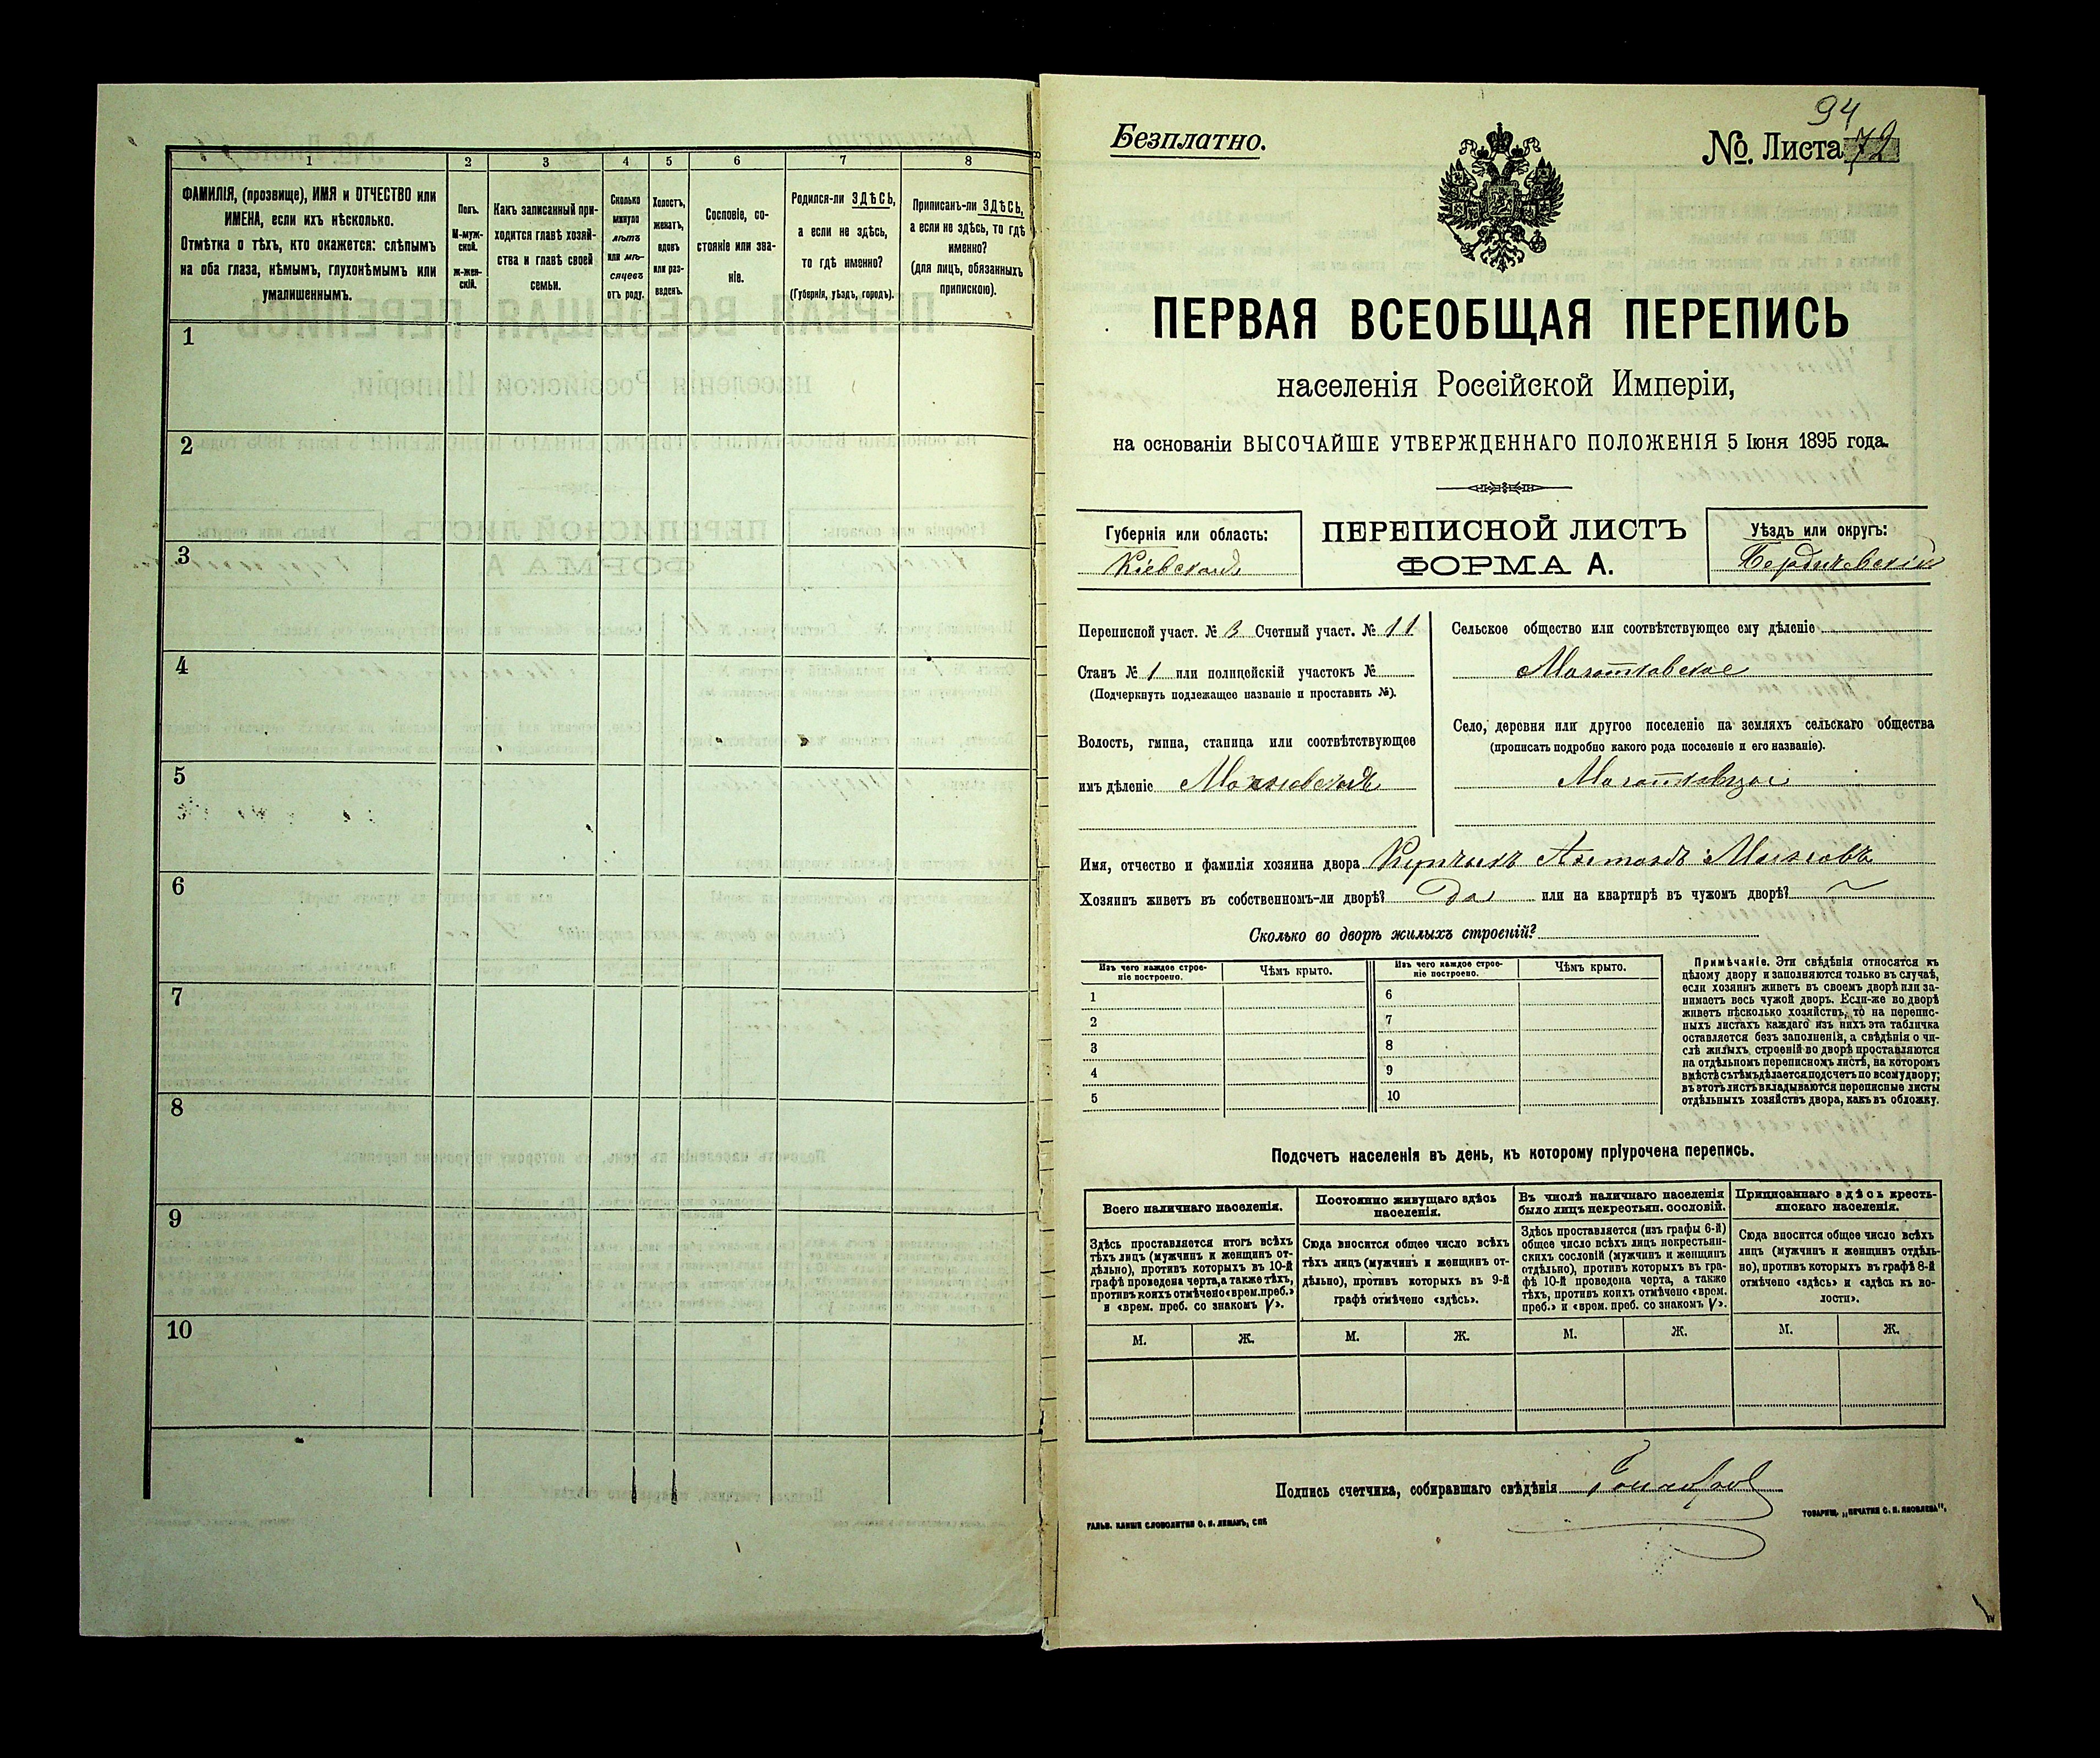 1 2 3 4 5 6 7 8
ФАМИЛІЯ, (прозвище), ИМЯ и ОТЧЕСТВО или
ИМЕНА, если ихъ нѣсколько.
Отмѣтка о тѣхъ, кто окажется: слѣпымъ
на оба глаза, нѣмымъ, глухонѣмымъ или
умалишеннымъ.
Полъ.
М-муж-
ской.
ж-жен-
скій.
Какъ записанный при-
ходится главѣ хозяй-
ства и главѣ своей
семьи.
Сколько
минуло
лѣтъ
или мѣ-
сяцевъ
отъ роду.
Холостъ,
женатъ,
вдовъ
или раз-
веденъ.
Сословіе, со-
стояніе или зва-
ніе.
Родился-ли ЗДѢСЬ,
а если не здѣсь,
то гдѣ именно?
(Губернія, уѣздъ, городъ).
Приписанъ-ли ЗДѢСЬ,
а если не здѣсь, то гдѣ
именно?
(для лицъ, обязанныхъ
припискою).
1
2
3
4
5
6
7
8
9
10
94
Безплатно.
№. Листа 72
ПЕРВАЯ ВСЕОБЩАЯ ПЕРЕПИСЬ
населенія Россійской Имперіи,
на основаніи ВЫСОЧАЙШЕ УТВЕРЖДЕННАГО ПОЛОЖЕНІЯ 5 Іюня 1895 года.
Губернія или область:
Кіевская
ПЕРЕПИСНОЙ ЛИСТЪ
ФОРМА А.
Уѣздъ или округъ:
Бердичевскій
Переписной участ. № 3 Счетный участ. № 11
Станъ № 1 или полицейскій участокъ №
(Подчеркнуть подлежащее названіе и проставить №).
Волость, гмина, станица или соотвѣтствующее
имъ дѣленіе
Сельское общество или соотвѣтствующее ему дѣленіе
Село, деревня или другое поселеніе на земляхъ сельскаго общества
(прописать подробно какого рода поселеніе и его названіе).
Имя, отчество и фамилія хозяина двора
Хозяинъ живетъ въ собственномъ-ли дворѣ? Да или на квартирѣ въ чужомъ дворѣ?
Сколько во дворѣ жилыхъ строеній?
Изъ чего каждое строе-
ніе построено.
Чѣмъ крыто.
Изъ чего каждое строе-
ніе построено.
Чѣмъ крыто.
1 6
2 7
3 8
4 9
5 10
Примѣчаніе. Эти свѣдѣнія относятся къ
цѣлому двору и заполняются только въ случаѣ,
если хозяинъ живетъ въ своемъ дворѣ или за-
нимаетъ весь чужой дворъ. Если-же во дворѣ
живетъ нѣсколько хозяйствъ, то на перепис-
ныхъ листахъ каждаго изъ нихъ эта табличка
оставляется безъ заполненія, а свѣдѣнія о чи-
слѣ жилыхъ строеній во дворѣ проставляются
на отдѣльномъ переписномъ листѣ, на которомъ
вмѣстѣ съ тѣмъ дѣлается подсчетъ по всему двору;
въ этотъ листъ вкладываются переписные листы
отдѣльныхъ хозяйствъ двора, какъ въ обложку.
Подсчетъ населенія въ день, къ которому пріурочена перепись.
Всего наличнаго населенія.
Здѣсь проставляется итогъ всѣхъ
тѣхъ лицъ (мужчинъ и женщинъ от-
дѣльно), противъ которыхъ въ 10-й
графѣ проведена черта, а также тѣхъ,
противъ коихъ отмѣчено «врем. преб.»
и «врем. преб. со знакомъ V».
Постоянно живущаго здѣсь
населенія.
Сюда вносится общее число всѣхъ
тѣхъ лицъ (мужчинъ и женщинъ от-
дѣльно), противъ которыхъ въ 9-й
графѣ отмѣчено «здѣсь».
Въ числѣ наличнаго населенія
было лицъ некрестьян. сословій.
Здѣсь проставляется (изъ графы 6-й)
общее число всѣхъ лицъ некрестьян-
скихъ сословій (мужчинъ и женщинъ
отдѣльно), противъ которыхъ въ гра-
фѣ 10-й проведена черта, а также
тѣхъ, противъ коихъ отмѣчено «врем.
преб.» и «врем. преб. со знакомъ V».
Приписаннаго здѣсь кресть-
янскаго населенія.
Сюда вносится общее число всѣхъ
лицъ (мужчинъ и женщинъ отдѣль-
но), противъ которыхъ въ графѣ 8-й
отмѣчено «здѣсь» и «здѣсь къ во-
лости».
М. Ж. М. Ж. М. Ж. М. Ж.
Подпись счетчика, собиравшаго свѣдѣнія
ГАЛЬВ. КЛИШЕ СЛОВОЛИТНИ О. И. ЛЕМАНЪ, СПБ
ТОВАРИЩ. „ПЕЧАТНИ С. П. ЯКОВЛЕВА“.